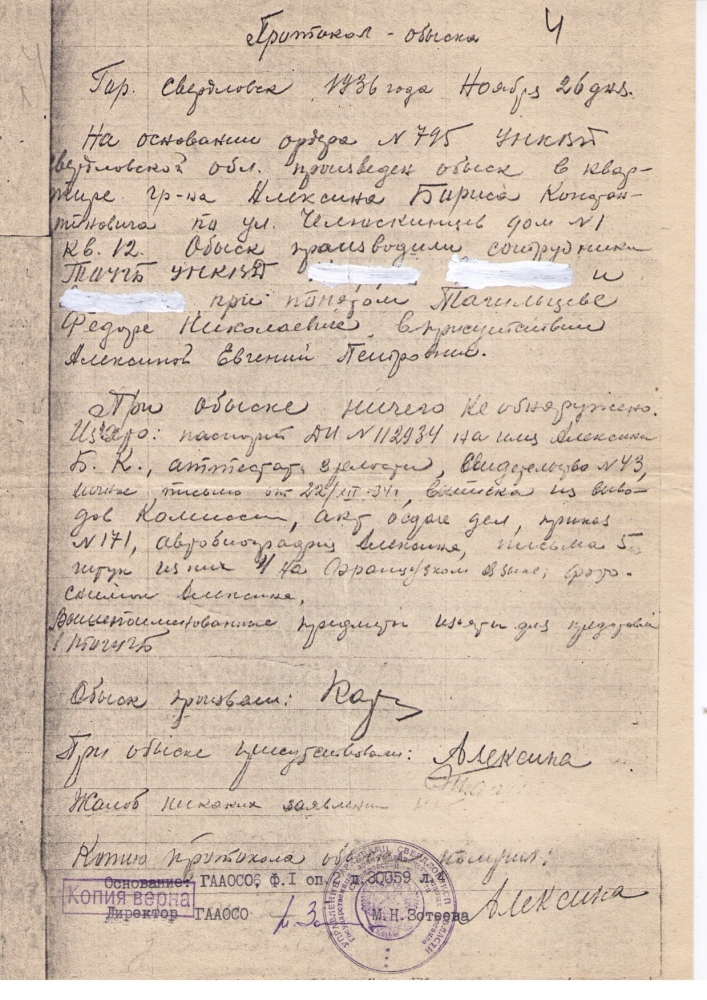 Протокол - обыска 4
Гор. Свердловск 1936 года Ноября 26 дня.
На основании ордера N 795 УНКВД
Свердловской обл. произведен обыск в квар-
тире гр-на Алексина Бориса Констан-
тиновича по ул. Челюскинцев дом N1
кв. 12. Обыск производили сотрудники
УНКВД и
при понятом Тагильцеве
Федоре Николаевиче, в присутствии
Алексиной Евгении Петровны.
При обыске ничего не обнаружено.
Изято: паспорт N 112934 на имя Алексина
Б. К., аттестат зрелости, Свидетельство N 43,
письмо от 22/ 34г, Выписка из выво-
дов Комиссии, акт о сдаче дел, приказ
N 171, автобиография Алексина, письма 5
штук из них 4 на Французском языке, фото-
снимок Алексина.
Вышепоименованные предметы изъяты для
в
Обыск произвели:
При обыске присутствовали: Алексина
Жалоб никаких заявлений
Копию протокола получил:
Основание: ГААОСО, ф.I оп. д.30059 л.
Копия верна
Директор ГААОСО М.Н.Зотеева Алексина